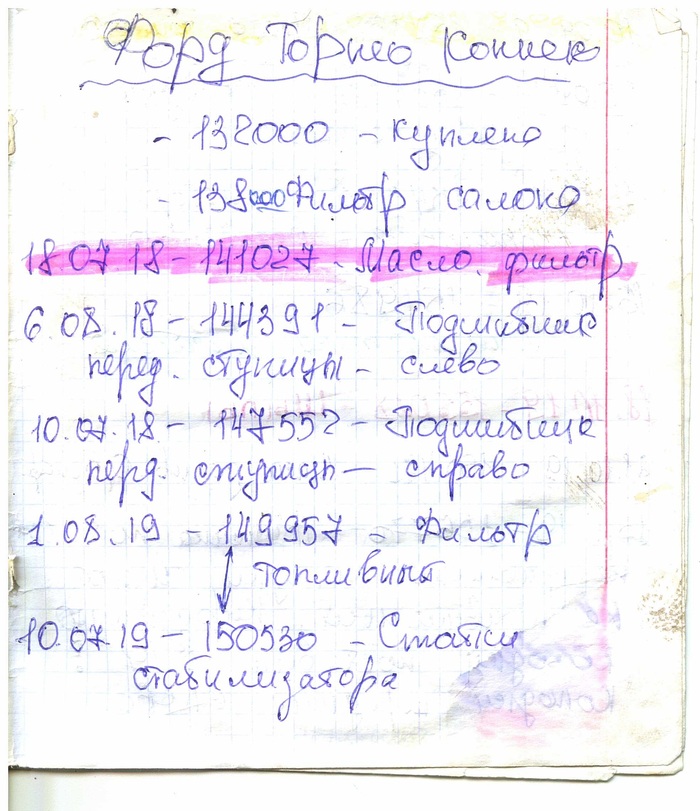 Форд Торнео Коннек
- 132000 - куплена
- 138000 Фильтр салона
18 07 18 - 141027 - Масло, фильтр
6.08.18 - 144391 - Подшибник
перед. ступицы - слево
10.07.18 - 147552 - Подшибник
перд. ступицы - справо
1.08.19 - 149957 - Фильтр
топливный
10.07.19 - 150530 - Стойки
стабилизатора